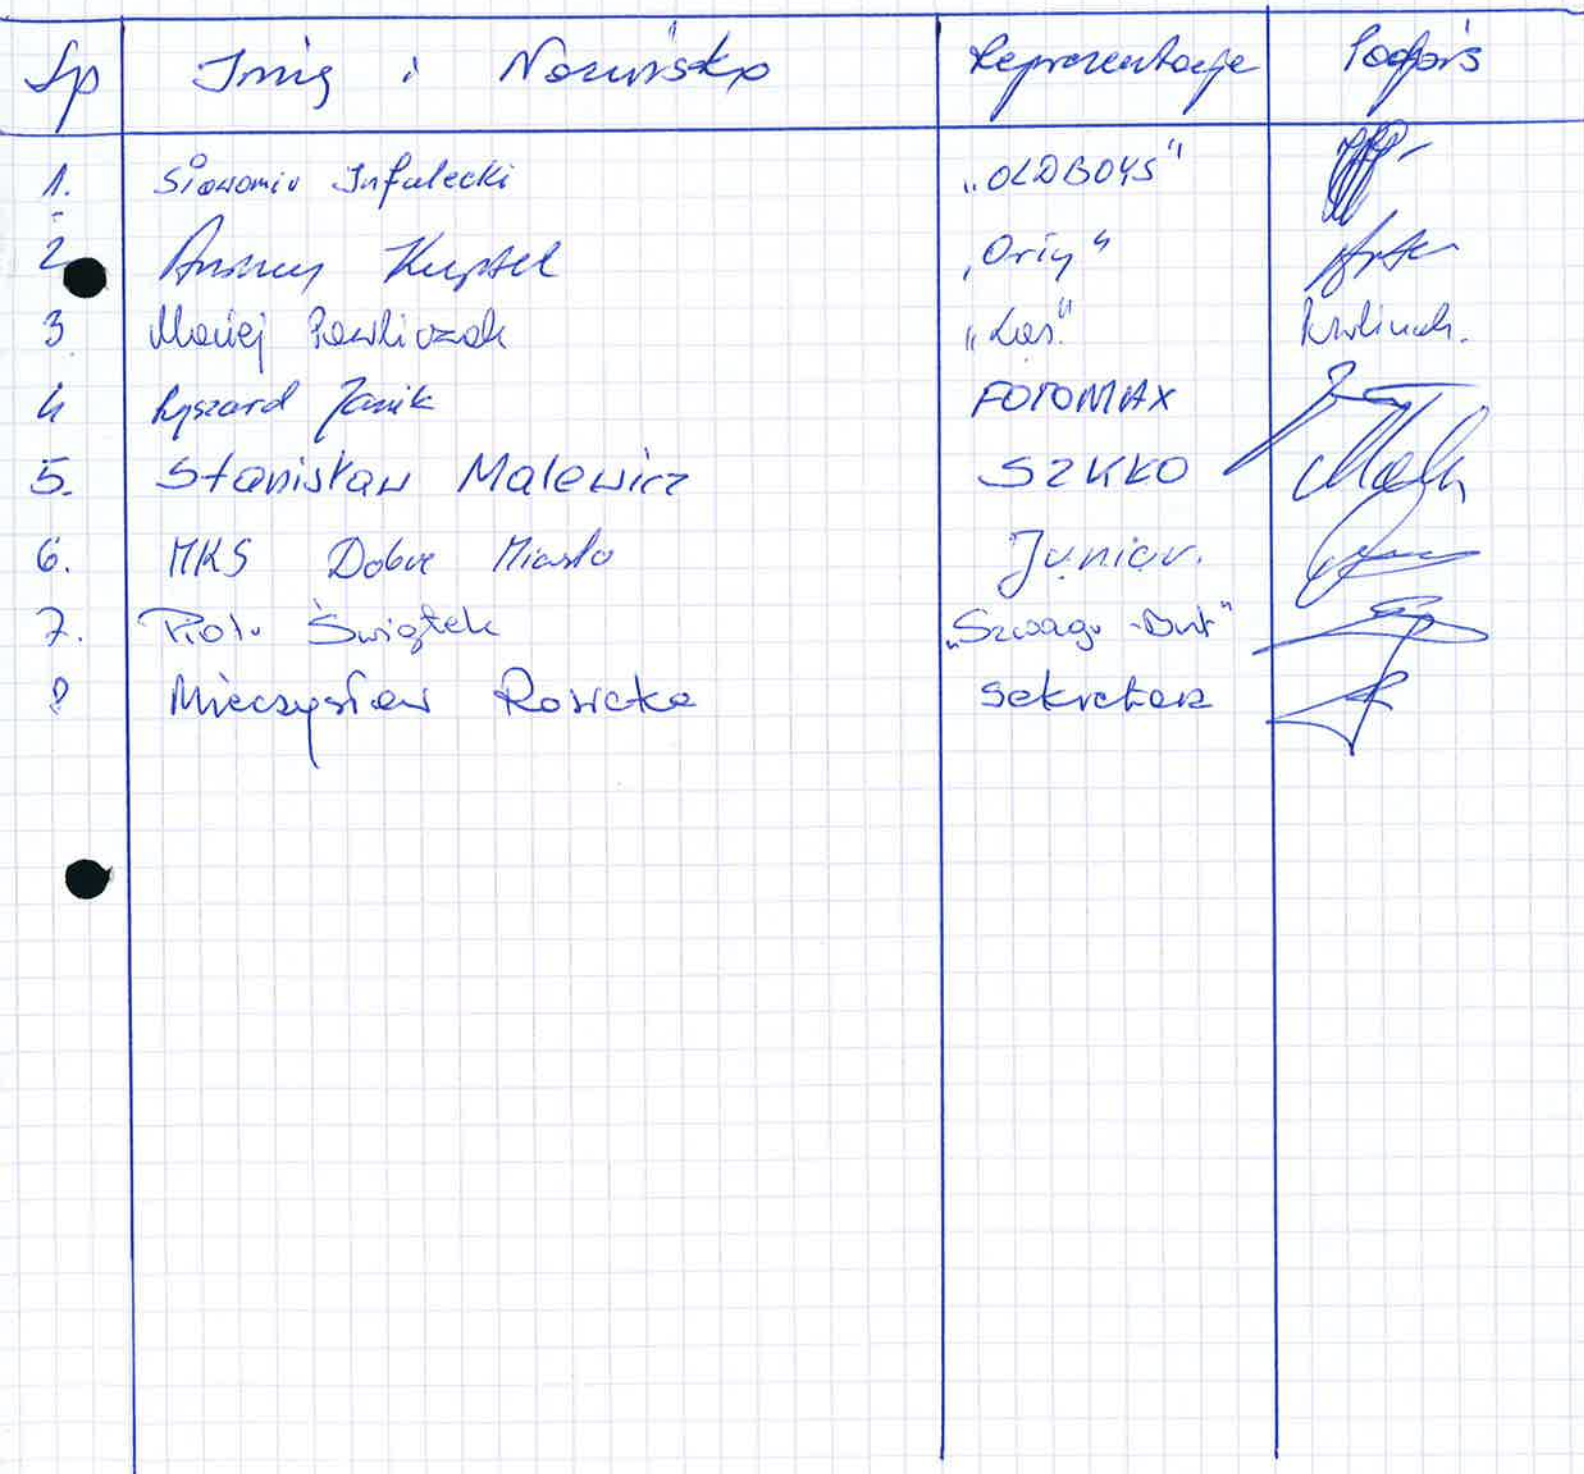 Lp Imię i Nazwisko Reprezentacje Podpis
1. Sławomir Infulecki „OLDBOYS”
2 Andrzej „Orły”
3 Maciej Pawliczak „Las”
4 Ryszard Janik FOTOMAX
5. Stanisław Malewicz SZKŁO
6. MKS Dobre Miasto Junior.
7. Piotr Świątek „Szwagr -But”
8 Mieczysław Rosicka Sekretarz